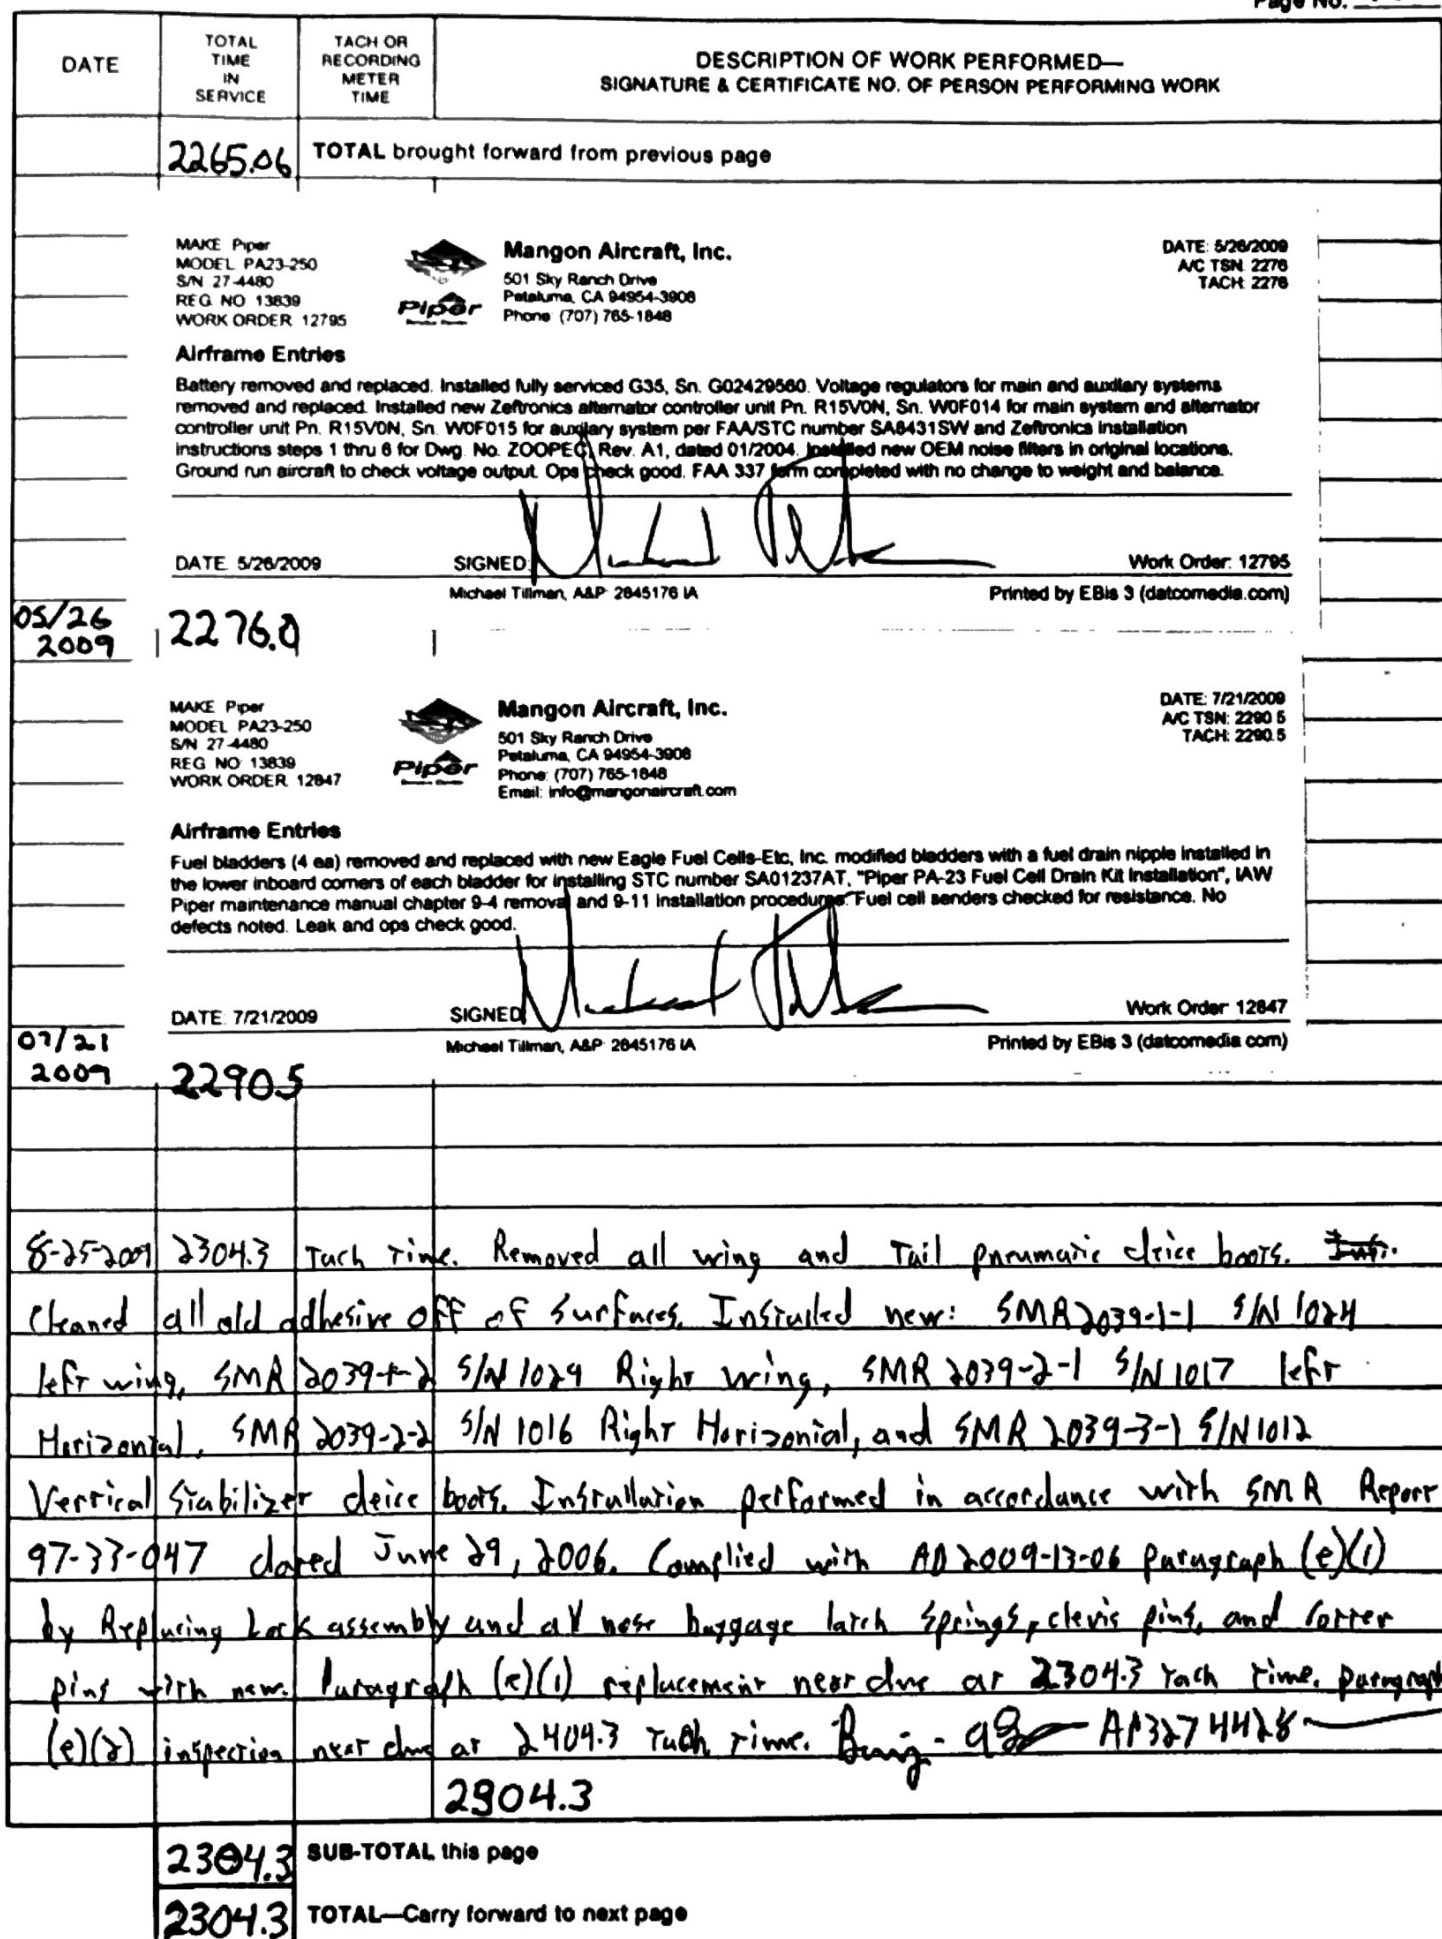 Page No.
DATE
TOTAL TIME IN SERVICE
TACH OR RECORDING METER TIME
DESCRIPTION OF WORK PERFORMED—
SIGNATURE & CERTIFICATE NO. OF PERSON PERFORMING WORK
2265.06 TOTAL brought forward from previous page
MAKE Piper
MODEL PA23-250
S/N 27-4480
REG NO 13839
WORK ORDER 12795
Piper
Mangon Aircraft, Inc.
501 Sky Ranch Drive
Petaluma, CA 94954-3908
Phone: (707) 765-1848
DATE: 5/26/2009
A/C TSN: 2276
TACH: 2276
Airframe Entries
Battery removed and replaced. Installed fully serviced G35, Sn. G02429560. Voltage regulators for main and auxilary systems
removed and replaced. Installed new Zeftronics alternator controller unit Pn. R15V0N, Sn. W0F014 for main system and alternator
controller unit Pn. R15V0N, Sn. W0F015 for auxilary system per FAA/STC number SA8431SW and Zeftronics installation
instructions steps 1 thru 6 for Dwg. No. ZOOPEC, Rev. A1, dated 01/2004. Installed new OEM noise filters in original locations.
Ground run aircraft to check voltage output. Ops check good. FAA 337 form completed with no change to weight and balance.
DATE 5/26/2009 SIGNED: Work Order: 12795
Michael Tillman, A&P: 2845176 IA Printed by EBis 3 (datcomedia.com)
05/26
2009 2276.0
MAKE Piper
MODEL PA23-250
S/N 27-4480
REG NO 13839
WORK ORDER 12847
Piper
Mangon Aircraft, Inc.
501 Sky Ranch Drive
Petaluma, CA 94954-3908
Phone: (707) 765-1848
Email: info@mangonaircraft.com
DATE: 7/21/2009
A/C TSN: 2290.5
TACH: 2290.5
Airframe Entries
Fuel bladders (4 ea) removed and replaced with new Eagle Fuel Cells-Etc, Inc. modified bladders with a fuel drain nipple installed in
the lower inboard corners of each bladder for installing STC number SA01237AT, "Piper PA-23 Fuel Cell Drain Kit Installation", IAW
Piper maintenance manual chapter 9-4 removal and 9-11 installation procedures. Fuel cell senders checked for resistance. No
defects noted. Leak and ops check good.
DATE: 7/21/2009 SIGNED Work Order: 12847
Michael Tillman, A&P: 2845176 IA Printed by EBis 3 (datcomedia.com)
07/21
2009 2290.5
8-25-2009 2304.3 Tach Time. Removed all wing and Tail pneumatic deice boots.
Cleaned all old adhesive off of surfaces. Installed new: SMR2039-1-1 S/N 1024
left wing, SMR 2039-1-2 S/N 1029 Right wing, SMR 2039-2-1 S/N 1017 left
Horizontal, SMR 2039-2-2 S/N 1016 Right Horizontal, and SMR 2039-3-1 S/N 1012
Vertical Stabilizer deice boots. Installation performed in accordance with SMR Report
97-33-047 dated June 29, 2006. Complied with AD 2009-13-06 paragraph (e)(1)
by Replacing Lock assembly and all nose baggage latch springs, clevis pins, and cotter
pins with new. Paragraph (e)(1) replacement next due at 2304.3 Tach Time. paragraph
(e)(2) inspection next due at 2404.3 Tach Time. AP3274428
2904.3
2304.3 SUB-TOTAL this page
2304.3 TOTAL—Carry forward to next page